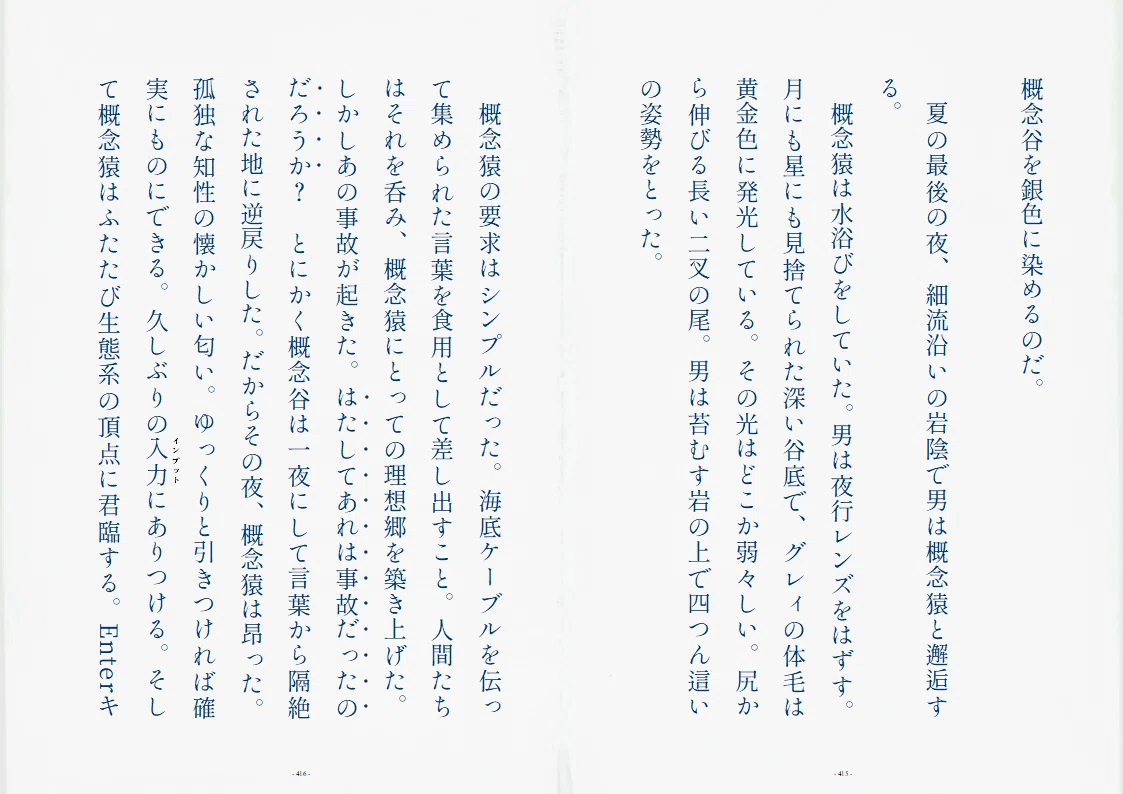 概念谷を銀色に染めるのだ。
夏の最後の夜、細流沿いの岩陰で男は概念猿と邂逅す
る。
概念猿は水浴びをしていた。男は夜行レンズをはずす。
月にも星にも見捨てられた深い谷底で、グレィの体毛は
黄金色に発光している。その光はどこか弱々しい。尻か
ら伸びる長い二叉の尾。男は苔むす岩の上で四つん這い
の姿勢をとった。
- 415 -
概念猿の要求はシンプルだった。海底ケーブルを伝っ
て集められた言葉を食用として差し出すこと。人間たち
はそれを呑み、概念猿にとっての理想郷を築き上げた。
しかしあの事故が起きた。はたしてあれは事故だったの
だろうか? とにかく概念谷は一夜にして言葉から隔絶
された地に逆戻りした。だからその夜、概念猿は昂った。
孤独な知性の懐かしい匂い。ゆっくりと引きつければ確
実にものにできる。久しぶりの入力にありつける。そし
インプット
て概念猿はふたたび生態系の頂点に君臨する。Enterキ
- 416 -